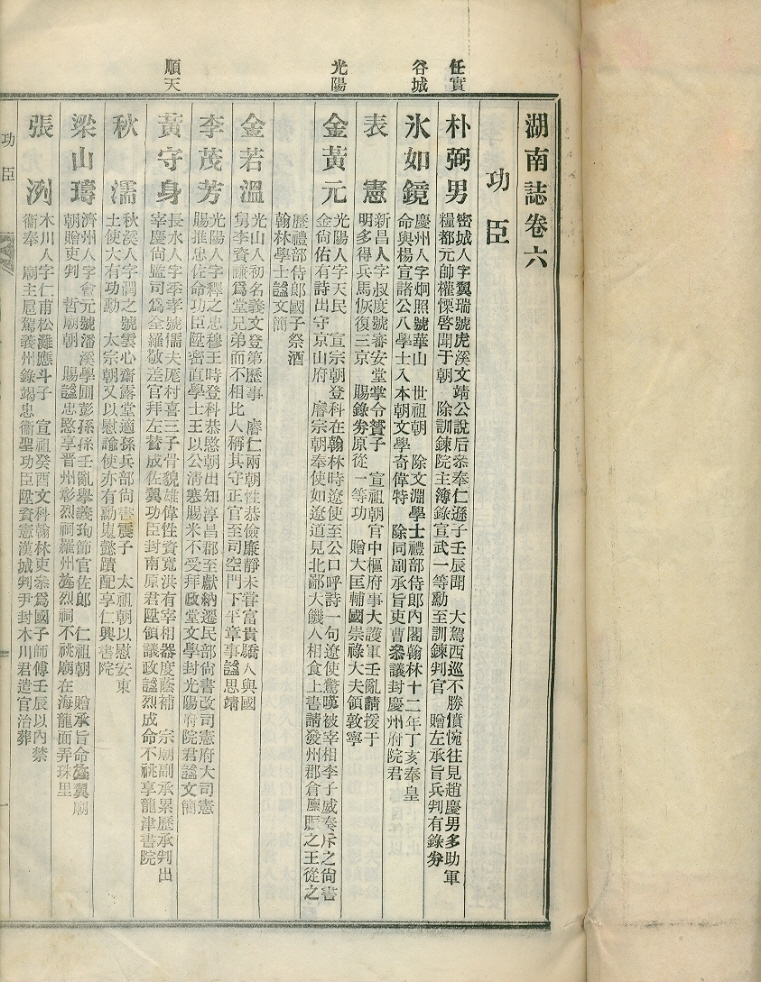 湖南誌卷六
功臣
任實
朴弼男
密城人字翼瑞號虎溪文靖公說后叅奉仁遜子壬辰聞 大駕西巡不勝憤惋往見趙慶男多助軍
糧都元帥權慄啓聞于朝 除訓鍊院主簿錄宣武一等勳至訓鍊判官 贈左承旨兵判有錄券
谷城
氷如鏡
慶州人字炯照號華山 世祖朝 除文淵學士禮部侍郎內閣翰林十二年丁亥奉皇
命與楊宣諸公八學士入本朝文學奇偉特 除同副承旨吏曹叅議封慶州府院君
表憲
新昌人字叔度號審安堂掌令贇子 宣祖朝官中樞府事大護軍壬亂請援于
明多得兵馬恢復三京 賜錄券原從一等功 贈大匡輔國崇祿大夫領敦寧
光陽
金黃元
光陽人字天民 宣宗朝登科在翰林時遼使至公口呼詩一句遼使驚嘆被宰相李子威奏斥之尙書
金尙佑有詩出守京山府 睿宗朝奉使如遼道見北鄙大饑人相食上書請發州郡倉廩賑之王從之
歷禮部侍郎國子祭酒
翰林學士謚文簡
金若溫
光山人初名義文登第歷事 睿仁兩朝性恭儉廉靜未甞富貴驕人與國
舅李資謙爲堂兄弟而不相比人稱其守正官至司空門下平章事謚思靖
李茂芳
光陽人字釋之忠穆王時登科恭愍朝出知淳昌郡至獻納遷民部尙書改司憲府大司憲
賜推忠佐命功臣陞密直學士王以公淸塞賜米不受拜政堂文學封光陽府院君謚文簡
順天
黃守身
長水人字季孝號懦夫厖村喜三子骨貌雄偉性資寬洪有宰相器度蔭補 宗廟副承累歷承判出
宰慶尙監司爲金羅敬差官拜左贊成佐翼功臣封南原君陞領議政謚烈成命不祧享龍津書院
秋濡
秋溪人字潤之號雲心齋露堂適孫兵部尙書震子 太祖朝以慰安東
土使大有功勳 太宗朝又以慰諭使亦有勳嵬懿蹟配享仁興書院
梁山璹
濟州人字會元號潘溪學圃彭孫孫壬亂擧義殉節官佐郎 仁祖朝 贈承旨命旌翼廟
朝贈吏判 哲廟朝 賜謚忠愍享晋州彰烈祠羅州旌烈祠不祧廟在海龍面弄珠里
張洌
木川人字仁甫松灘應斗子 宣祖癸酉文科翰林吏叅爲國子師傅壬辰以內禁
衞奉 廟主扈駕義州錄竭忠衞聖功臣陞資憲漢城判尹封木川君遣官治葬
功臣